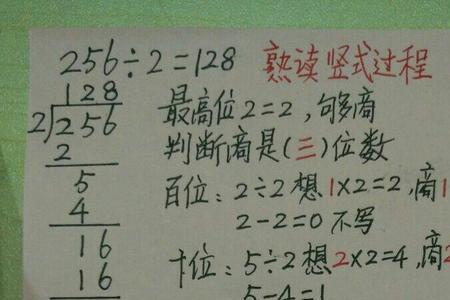 256÷2=128 熟读竖式过程
128
2256
2
5
4
16
16
最高位2=2,够商
判断商是(三)位数
百位:2÷2想1×2=2,商1
2-2=0不写
十位:5÷2想2×2=4,商2
5-4=1